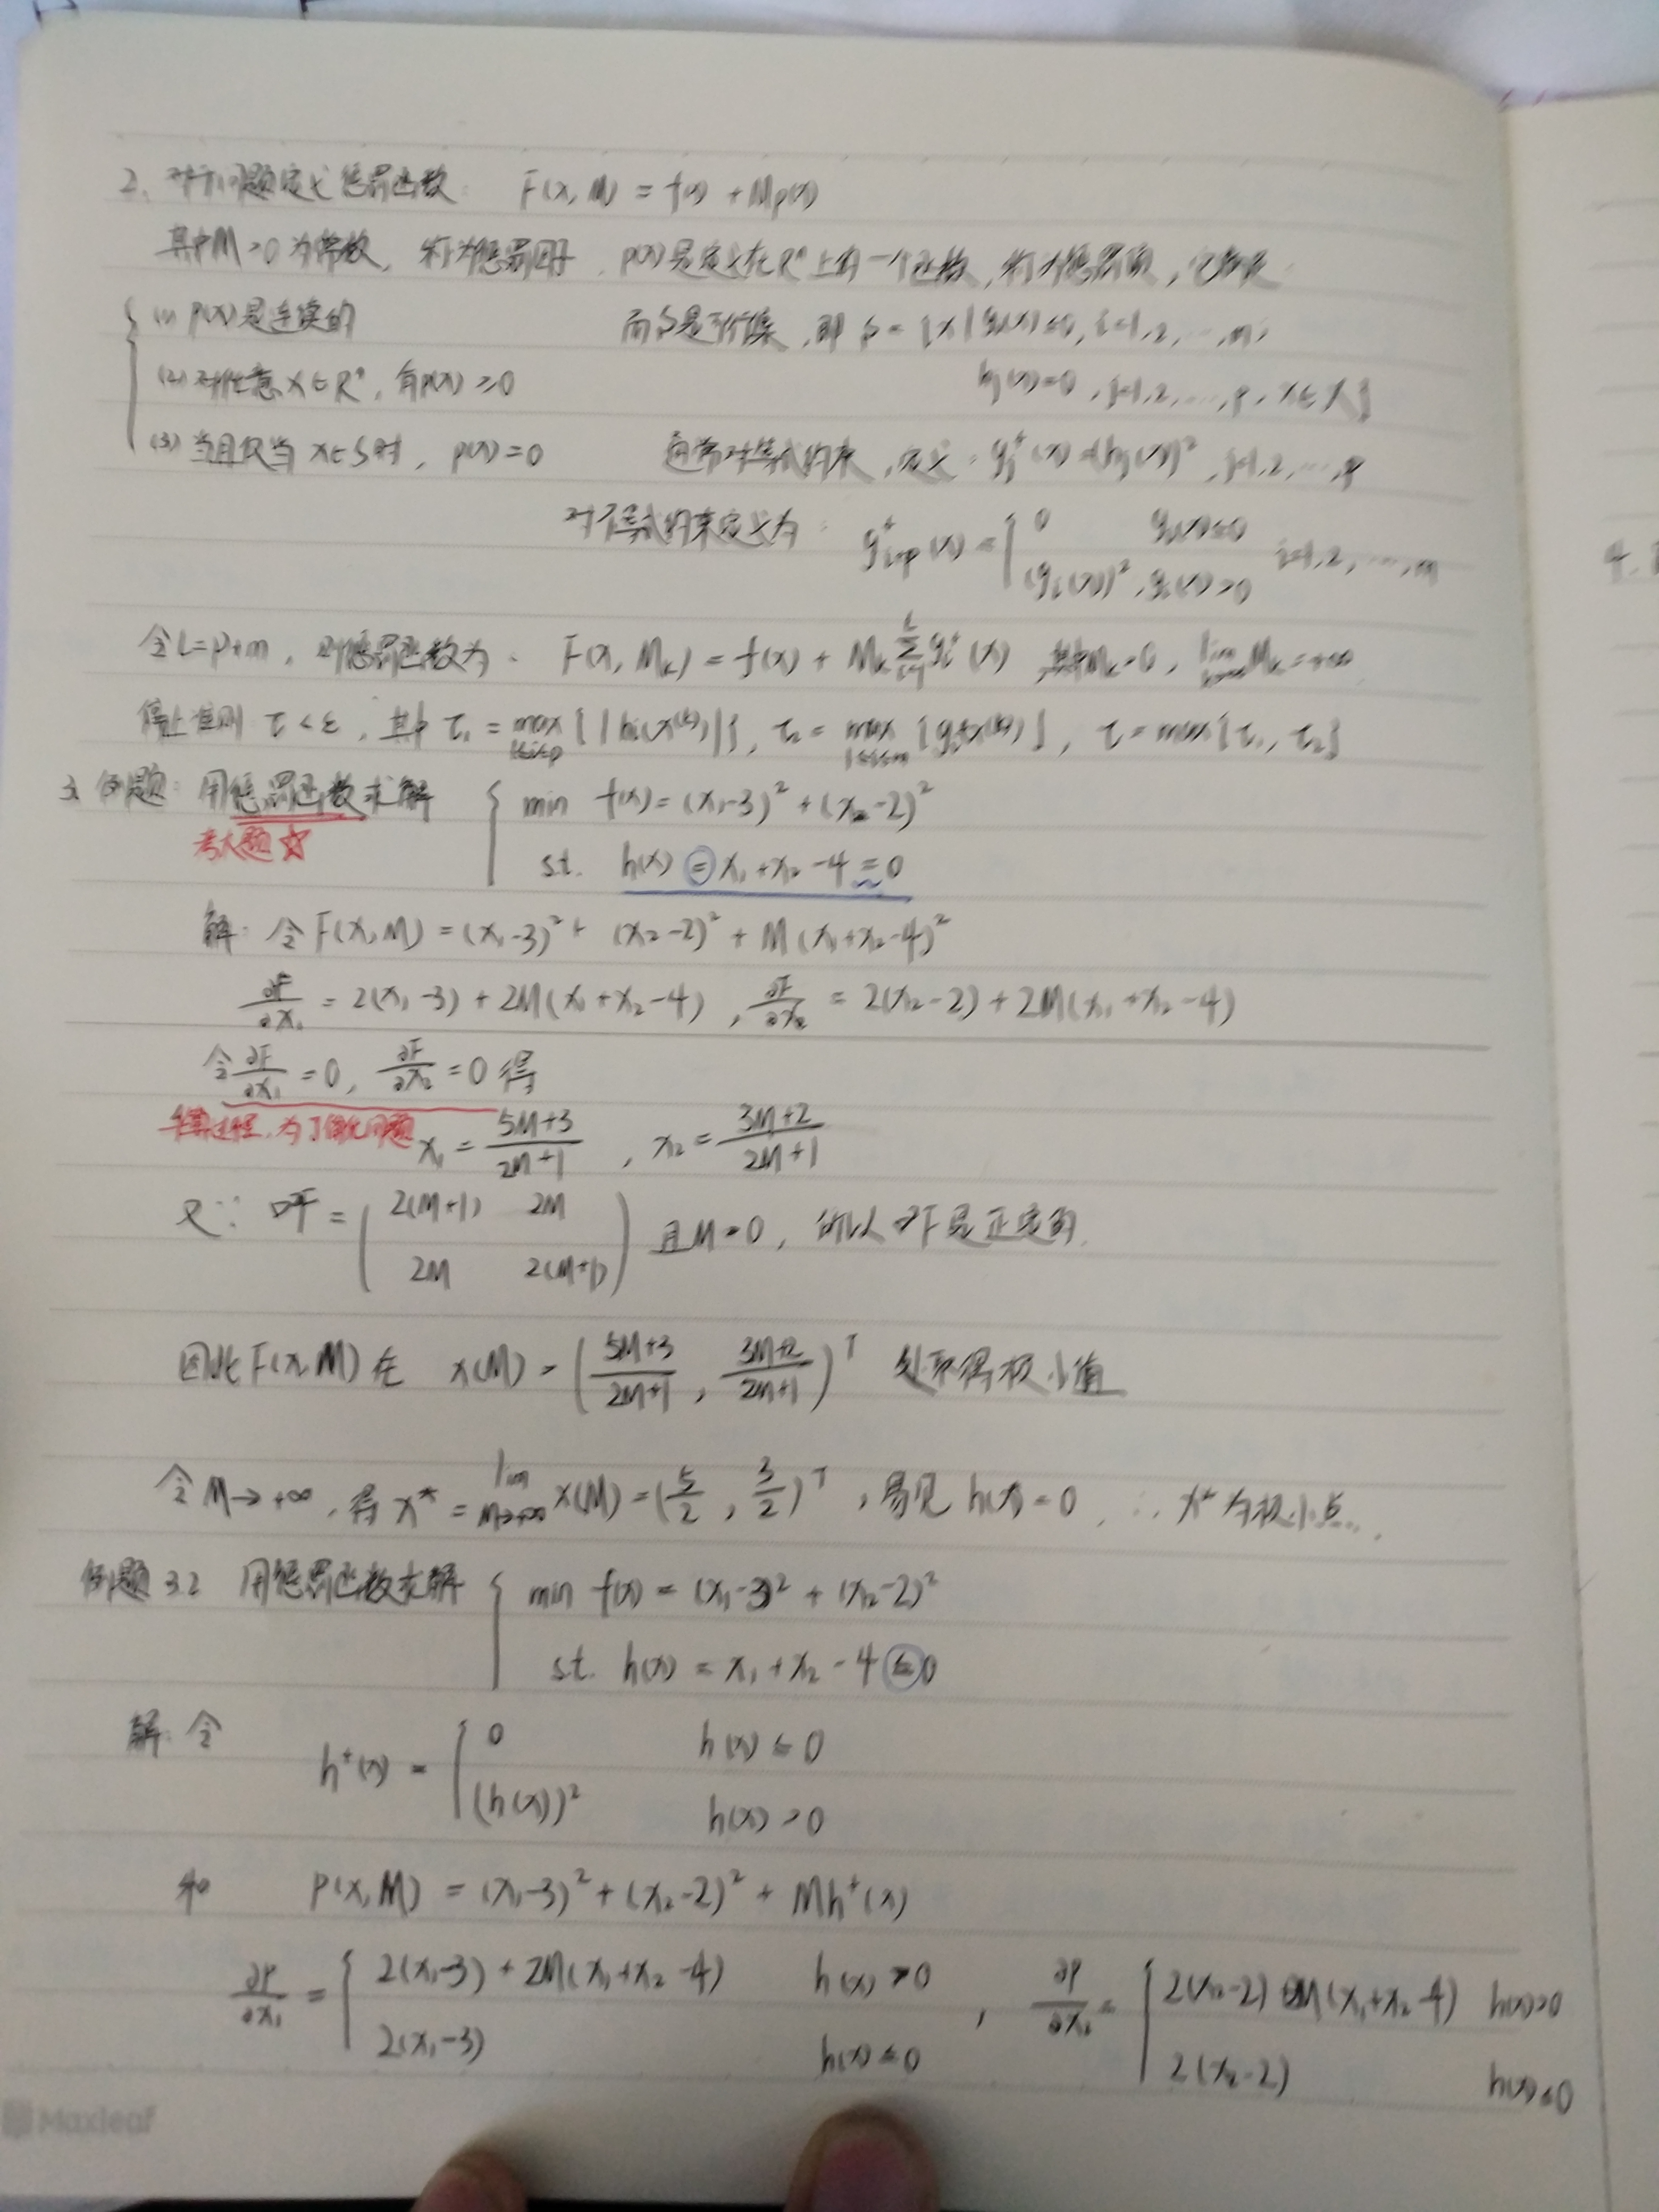 2. 对于问题定义惩罚函数: F(x, M) = f(x) + Mp(x)
其中M>0为常数, 称为惩罚因子, p(x)是定义在Rⁿ上的一个函数, 称为惩罚项, 它满足:
(1) p(x)是连续的 而S是可行集, 即 S = {x | gᵢ(x)≤0, i=1,2,…,m;
(2) 对任意x∈Rⁿ, 有p(x) ≥0 hⱼ(x)=0, j=1,2,…,p, x∈X}
(3) 当且仅当 x∈S时, p(x)=0 通常对等式约束, 定义: gⱼ⁺(x) = (hⱼ(x))², j=1,2,…,p
对不等式约束定义为: g⁺ᵢ₊ₚ(x) = { 0 gᵢ(x)≤0
(gᵢ(x))², gᵢ(x)>0 i=1,2,…,m
令L=p+m, 则惩罚函数为: F(x, Mₖ) = f(x) + Mₖ Σᵢ₌₁ᴸ gᵢ⁺(x) 其中Mₖ>0, lim Mₖ = +∞
停止准则 τ < ε, 其中 τ₁ = max_{1≤i≤p} {|hᵢ(x⁽ᵏ⁾)|}, τ₂ = max_{1≤i≤m} {gᵢ(x⁽ᵏ⁾)}, τ = max{τ₁, τ₂}
3. 例题: 用惩罚函数求解 { min f(x) = (x₁-3)² + (x₂-2)²
考大题☆
s.t. h(x) = x₁+x₂-4 = 0
解: 令F(x,M) = (x₁-3)² + (x₂-2)² + M(x₁+x₂-4)²
∂F/∂x₁ = 2(x₁-3) + 2M(x₁+x₂-4), ∂F/∂x₂ = 2(x₂-2) + 2M(x₁+x₂-4)
令 ∂F/∂x₁ = 0, ∂F/∂x₂ = 0 得
x₁ = (5M+3)/(2M+1), x₂ = (3M+2)/(2M+1)
又∵ ∇²F = ( 2(M+1) 2M
2M 2(M+1) ) 且M>0, 所以∇²F是正定的.
因此F(x,M)在 x(M) = ( (5M+3)/(2M+1), (3M+2)/(2M+1) )ᵀ 处取得极小值
令M→+∞, 得x* = lim_{M→+∞} x(M) = (5/2, 3/2)ᵀ, 易见h(x)=0, ∴x*为极小点.
例题3.2 用惩罚函数求解 { min f(x) = (x₁-3)² + (x₂-2)²
s.t. h(x) = x₁+x₂-4 ≤ 0
解: 令
h⁺(x) = { 0 h(x) ≤ 0
(h(x))² h(x) > 0
和 P(x,M) = (x₁-3)² + (x₂-2)² + Mh⁺(x)
∂P/∂x₁ = { 2(x₁-3) + 2M(x₁+x₂-4) h(x) > 0 , ∂P/∂x₂ = { 2(x₂-2) + 2M(x₁+x₂-4) h(x)>0
2(x₁-3) h(x) ≤ 0 2(x₂-2) h(x)≤0
Maxleaf